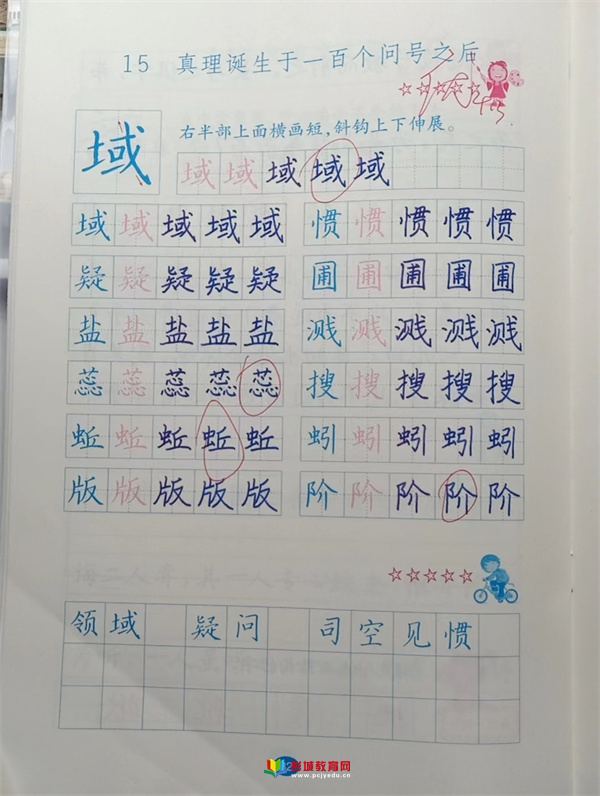 15 真理诞生于一百个问号之后
域
右半部上面横画短,斜钩上下伸展。
域域域域域
域域域域域 惯惯惯惯惯
疑疑疑疑疑 圃圃圃圃圃
盐盐盐盐盐 溅溅溅溅溅
蕊蕊蕊蕊蕊 搜搜搜搜搜
蚯蚯蚯蚯蚯 蚓蚓蚓蚓蚓
版版版版版 阶阶阶阶阶
领域 疑问 司空见惯
彭城教育网
www.pcjyedu.cn